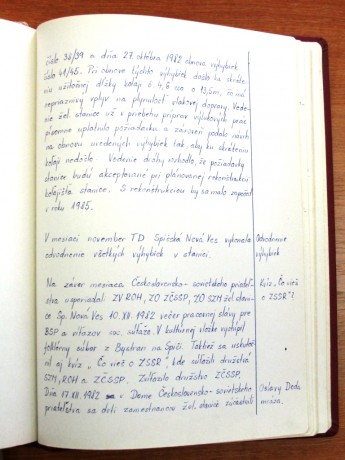 číslo 38/39 a dňa 27 októbra 1982 obnova výhybiek
číslo 41/45. Pri obnove týchto výhybiek došlo ku skráte-
niu užitočnej dĺžky koľají č 4,6 cca o 13,5m, čo má
nepriaznivý vplyv na plynulosť vlakovej dopravy. Vede-
nie žel. stanice už v priebehu príprav výlukových prác
písomne uplatnilo požiadavku a zároveň podalo návrh
na obnovu uvedených výhybiek tak, aby ku skráteniu
koľají nedošlo. Vedenie dráhy rozhodlo, že požiadavky
stanice budú akceptované pri plánovanej rekonštrukcii
koľajišťa stanice. S rekonštrukciou by sa malo započať
v roku 1985.
V mesiaci november TD Spišská Nová Ves vykonala
odvodnenie všetkých výhybiek v stanici.
Odvodnenie
výhybiek
Na záver mesiaca Československo-sovietskeho priateľ-
stva usporiadali ZV ROH, ZO ZČSSP, ZO SZM žel. stani-
ce Sp. Nová Ves 10. XII. 1982 večer pracovnej slávy pre
BSP a víťazov soc. súťaže. V kultúrnej vložke vystúpil
folklórny súbor z Bystran na Spiši. Taktiež sa uskutoč-
nil aj kvíz „Čo vieš o ZSSR", kde súťažili družstvá
SZM, ROH a ZČSSP. Zvíťazilo družstvo ZČSSP.
Kvíz „Čo vieš
o ZSSR"!
Dňa 17. XII. 1982 v Dome Československo-sovietskeho
priateľstva sa deti zamestnancov žel. stanice zúčastnili
Oslavy Deda
mráza.